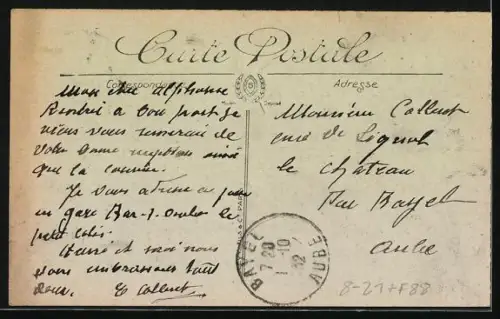 Carte Postale
Correspondance
Adresse
Mon cher Alphonse
Rentré à bon port je
viens vous remercier de
votre bonne réception ainsi
que la cousine.
Je vous
en gare Bar-s-Aube le
petit colis.
et moi nous
vous embrassons tous
deux. E Collent
Monsieur Collent
le Chateau
Par Bayel
Aube
BAYEL
7 20
1 -10
32
AUBE
8-21+F88